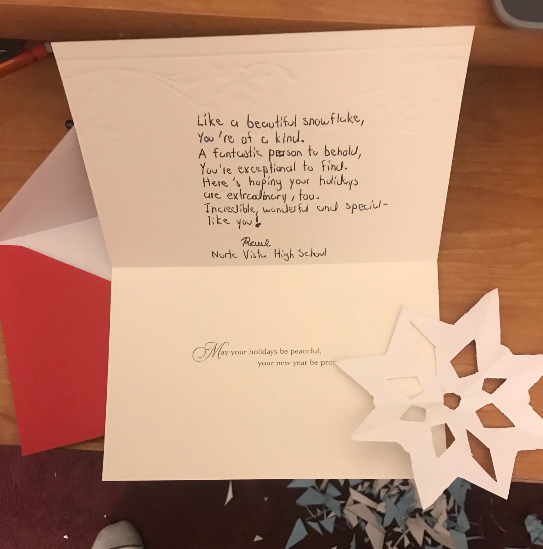 Like a beautiful snowflake,
You're of a kind.
A fantastic person to behold,
You're exceptional to find.
Here's hoping your holidays
are extraordinary, too.
Incredible, wonderful and special-
like you!
Norte Vista High School
May your holidays be peaceful,
your new year be